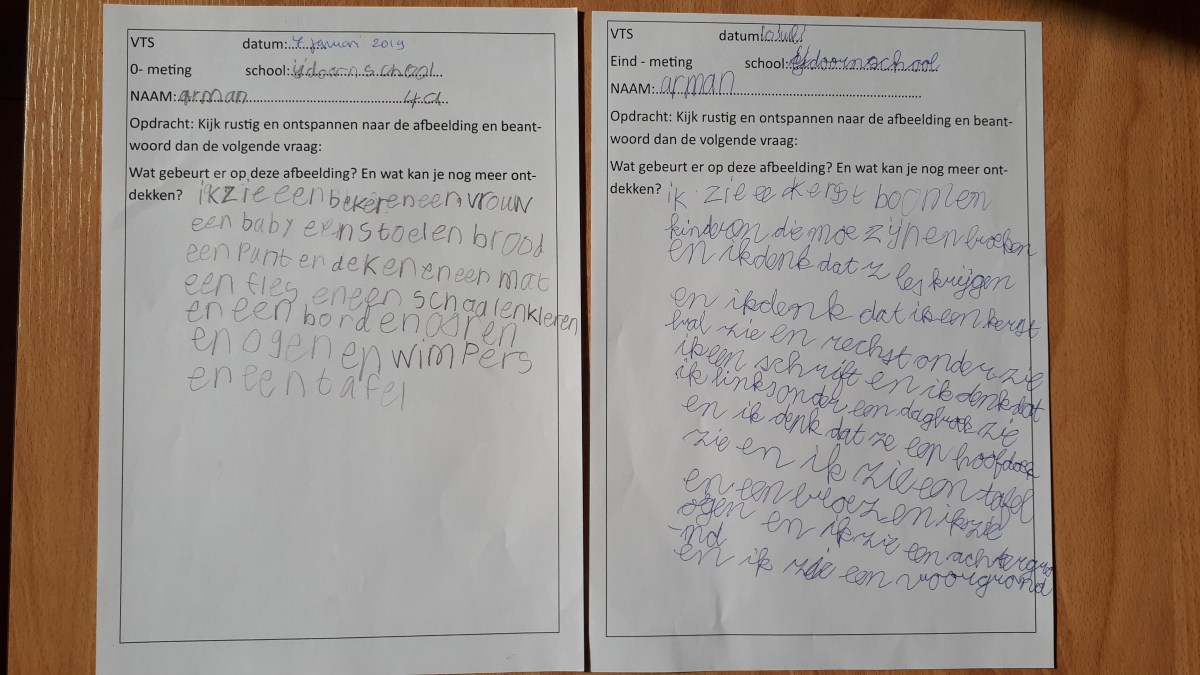 VTS datum:..7 januari 2019
0- meting school:ijdoornschool
NAAM:arman 4a
Opdracht: Kijk rustig en ontspannen naar de afbeelding en beant-
woord dan de volgende vraag:
Wat gebeurt er op deze afbeelding? En wat kan je nog meer ont-
dekken? ik zie een beker en een vrouw
een baby een stoel en brood
een punt en deken en een mat
een fles en een schaal en kleren
en een bord en oren
en ogen en wimpers
en een tafel
VTS datum
Eind - meting school:ijdoornschool
NAAM:arman
Opdracht: Kijk rustig en ontspannen naar de afbeelding en beant-
woord dan de volgende vraag:
Wat gebeurt er op deze afbeelding? En wat kan je nog meer ont-
dekken? ik zie ee kerst boom en
kinderen die moe zijn en boeken
en ik denk dat z les krijgen
en ik denk dat ik een kerst
bal zie en rechst onder zie
ik een schrift en ik denk dat
ik links onder een dagboek zie
en ik denk dat ze een hoofddoek
zie en ik zie een tafel
en een en ik zie
ogen en ik zie een achtergro
-nd
en ik zie een voorgrond